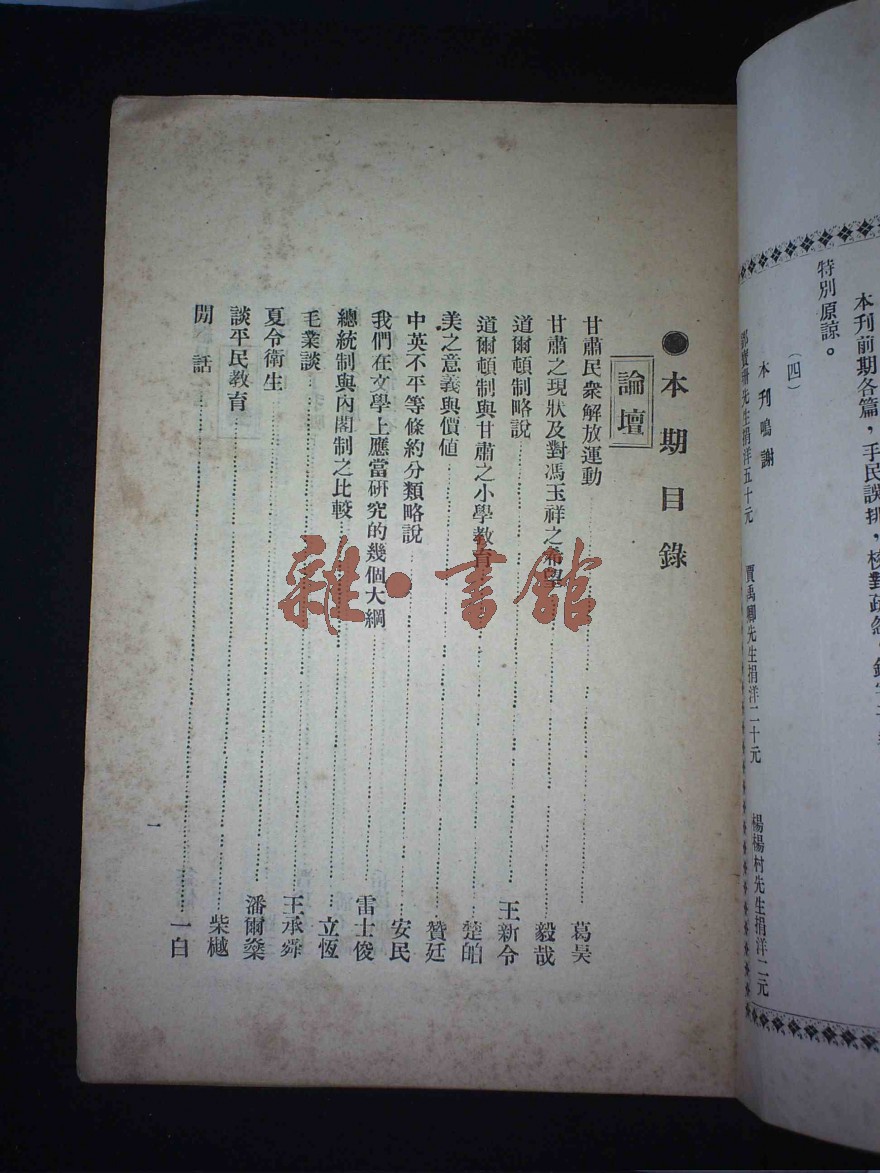 本刊前期各篇，手民誤排，校對疏忽，
特別原諒。
（四）
本刊鳴謝
先生捐洋五十元　賈禹卿先生捐洋二十元　楊楊村先生捐洋二元
●本期目錄
論壇
甘肅民衆解放運動……葛昊
甘肅之現狀及對馮玉祥之希望……毅哉
道爾頓制略說……王新令
道爾頓制與甘肅之小學教育……楚皕
美之意義與價值……贊廷
中英不平等條約分類略說……安民
我們在文學上應當研究的幾個大綱……雷士俊
總統制與內閣制之比較……立恆
毛業談……王承舜
夏令衛生……潘爾燊
談平民教育……柴樾
閒話……一白
一
雜·書館